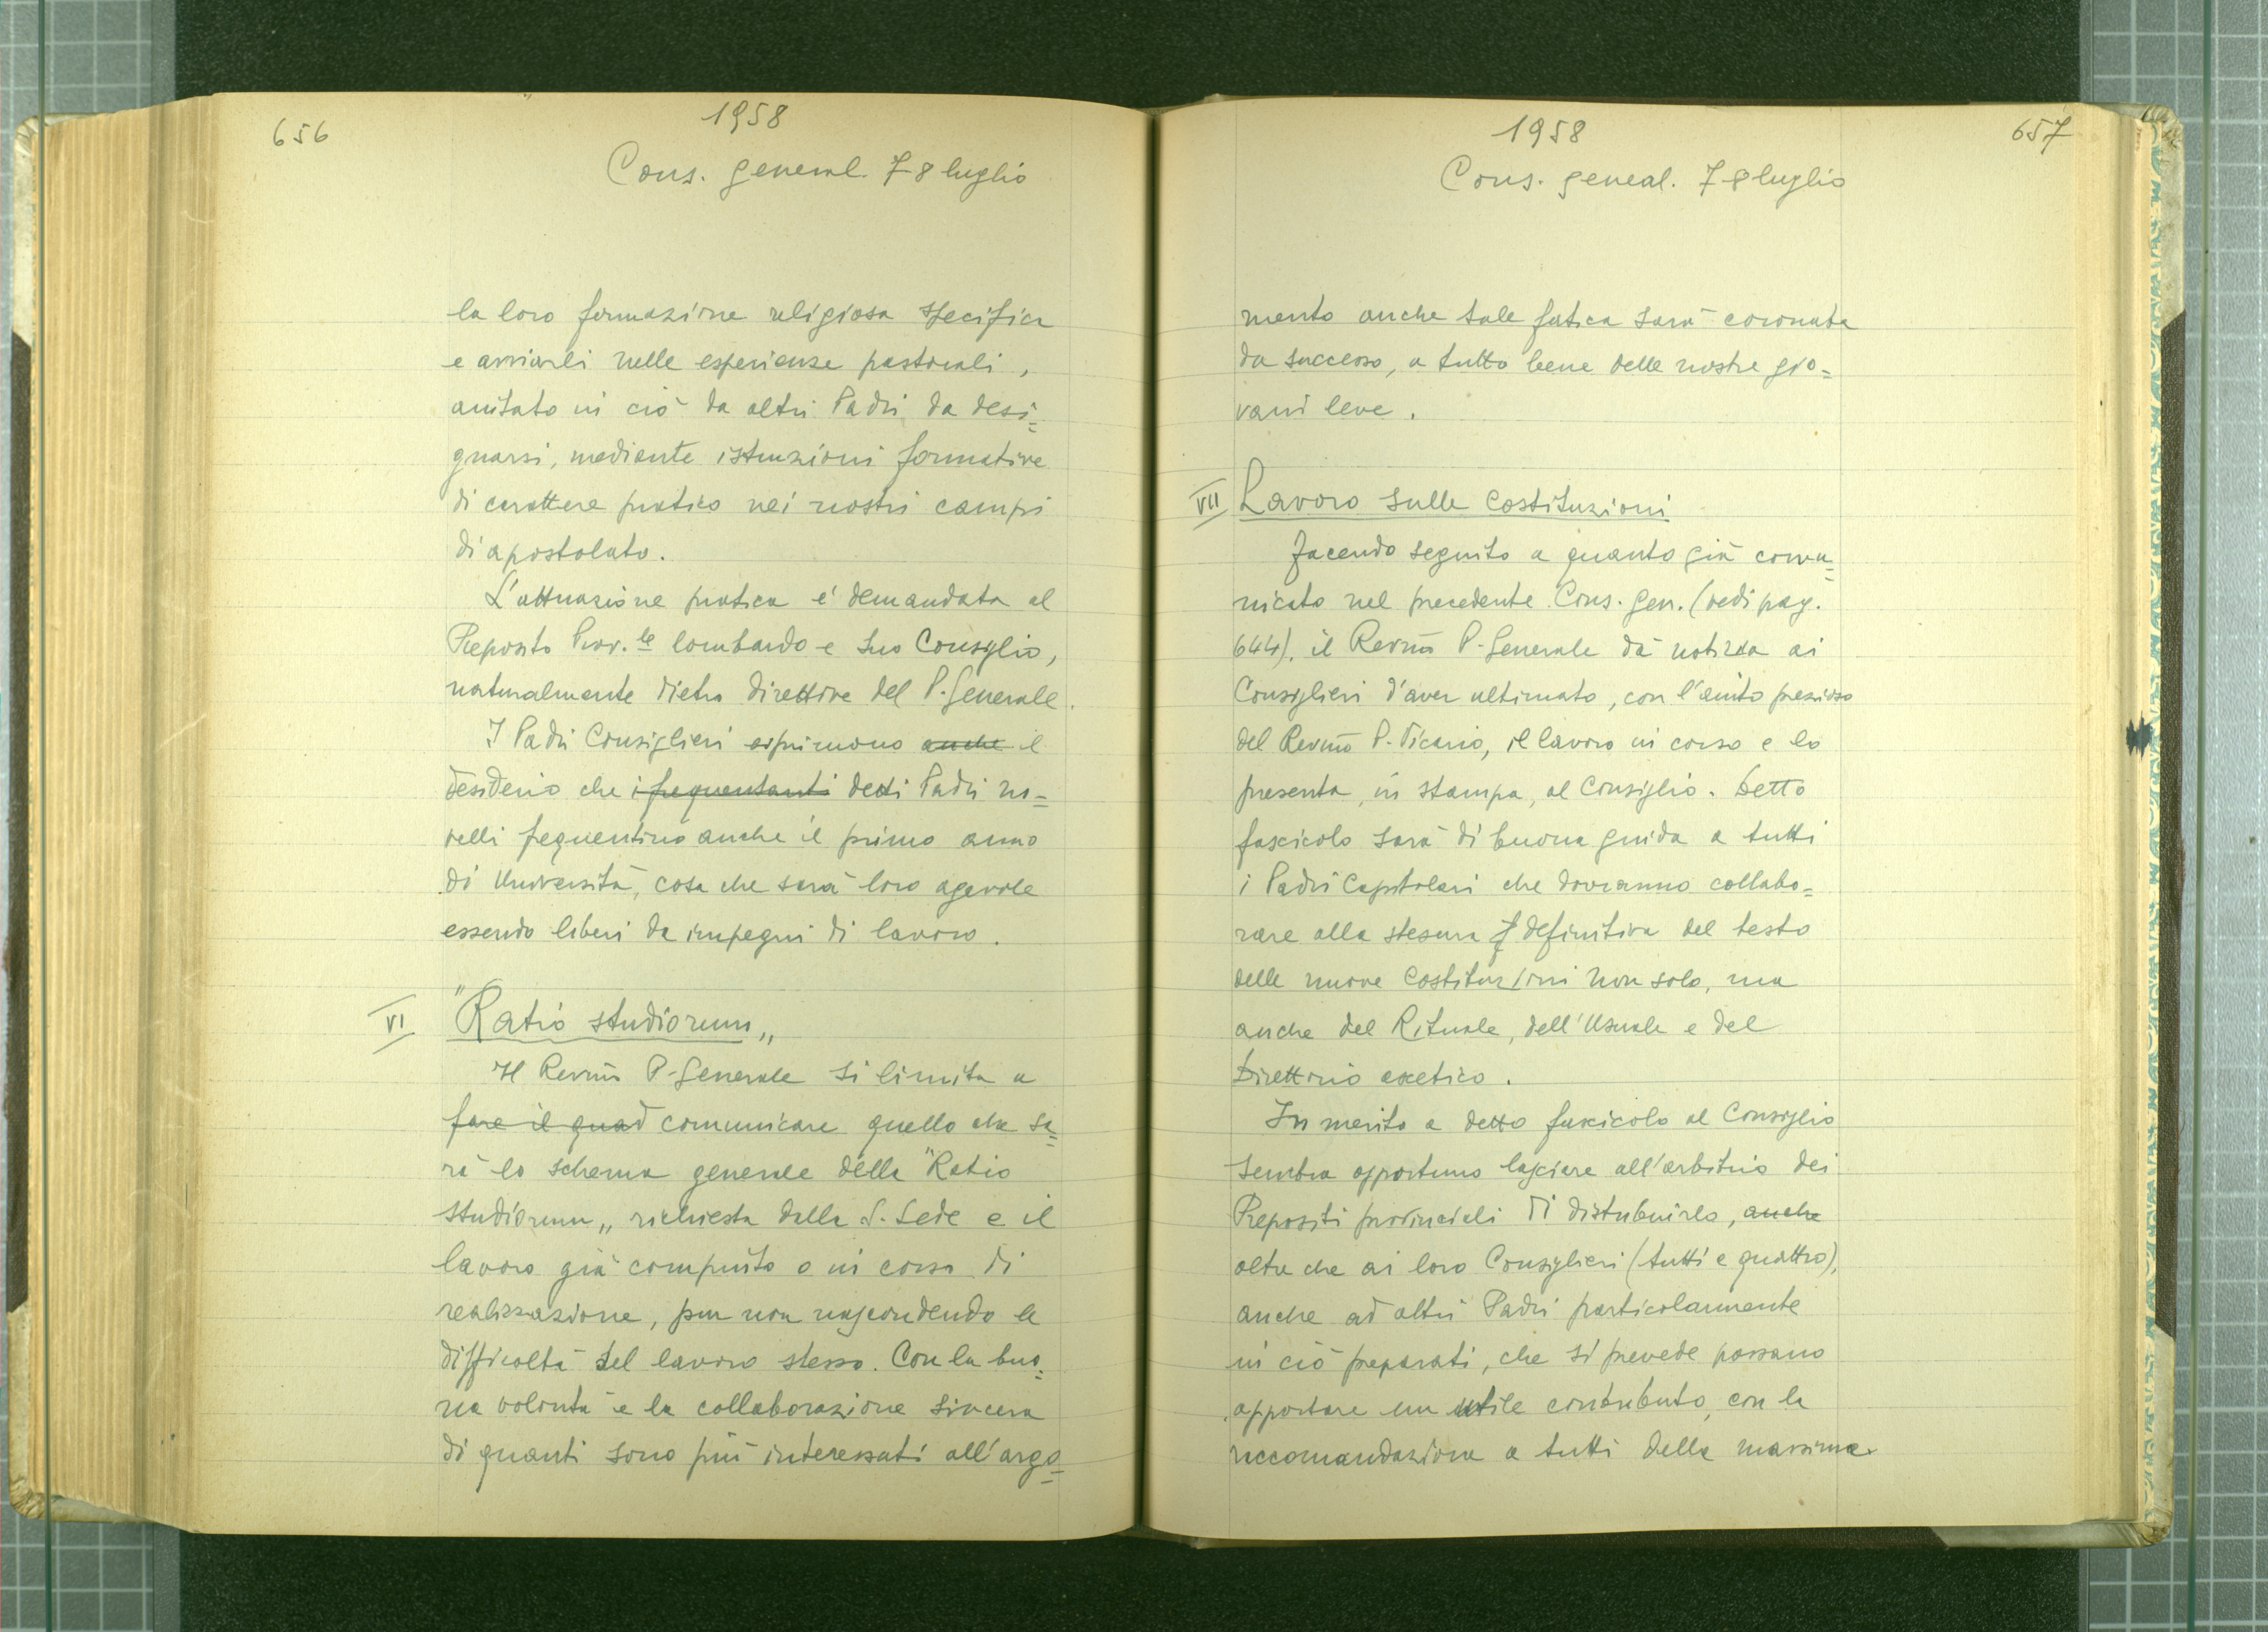 656
1958
Cons. general. 7-8 luglio
la loro formazione religiosa specifica
e avviarli nelle esperienze pastorali,
aiutato in ciò da altri Padri da desi=
gnarsi, mediante istruzioni formative
di carattere pratico nei nostri campi
di apostolato.
L'attuazione pratica e' demandata al
Preposito Prov.le lombardo e suo Consiglio,
naturalmente dietro direttive del P. Generale.
I Padri Consiglieri esprimono anche il
desiderio che i frequentanti detti Padri no=
velli frequentino anche il primo anno
di Università, cosa che sarà loro agevole
essendo liberi da impegni di lavoro.
VI "Ratio studiorum„
Il Revm̄o P. Generale si limita a
fare il quad comunicare quello che sa=
rà lo schema generale della "Ratio
studiorum„ richiesta dalla S. Sede e il
lavoro già compiuto o in corso di
realizzazione, pur non nascondendo le
difficoltà del lavoro stesso. Con la buo=
na volontà e la collaborazione sincera
di quanti sono più interessati all'argo=
657
1958
Cons. geneal. 7-8 luglio
mento anche tale fatica sarà coronata
da successo, a tutto bene delle nostre gio=
vani leve.
VII Lavoro sulle Costituzioni
Facendo seguito a quanto già comu=
nicato nel precedente Cons. Gen. (vedi pag.
644), il Revm̄o P. Generale dà notizia ai
Consiglieri d'aver ultimato, con l'aiuto prezioso
del Revm̄o P. Vicario, il lavoro in corso e lo
presenta, in stampa, al Consiglio. Detto
fascicolo sarà di buona guida a tutti
i Padri Capitolari che dovranno collabo=
rare alla stesura definitiva del testo
delle nuove Costituzioni non solo, ma
anche del Rituale, dell'Usuale e del
Direttorio ascetico.
In merito a detto fascicolo al Consiglio
sembra opportuno lasciare all'arbitrio dei
Prepositi provinciali di distribuirlo, anche
oltre che ai loro Consiglieri (tutti e quattro),
anche ad altri Padri particolarmente
in ciò preparati, che si prevede possano
apportare un utile contributo, con la
raccomandazione a tutti della massima